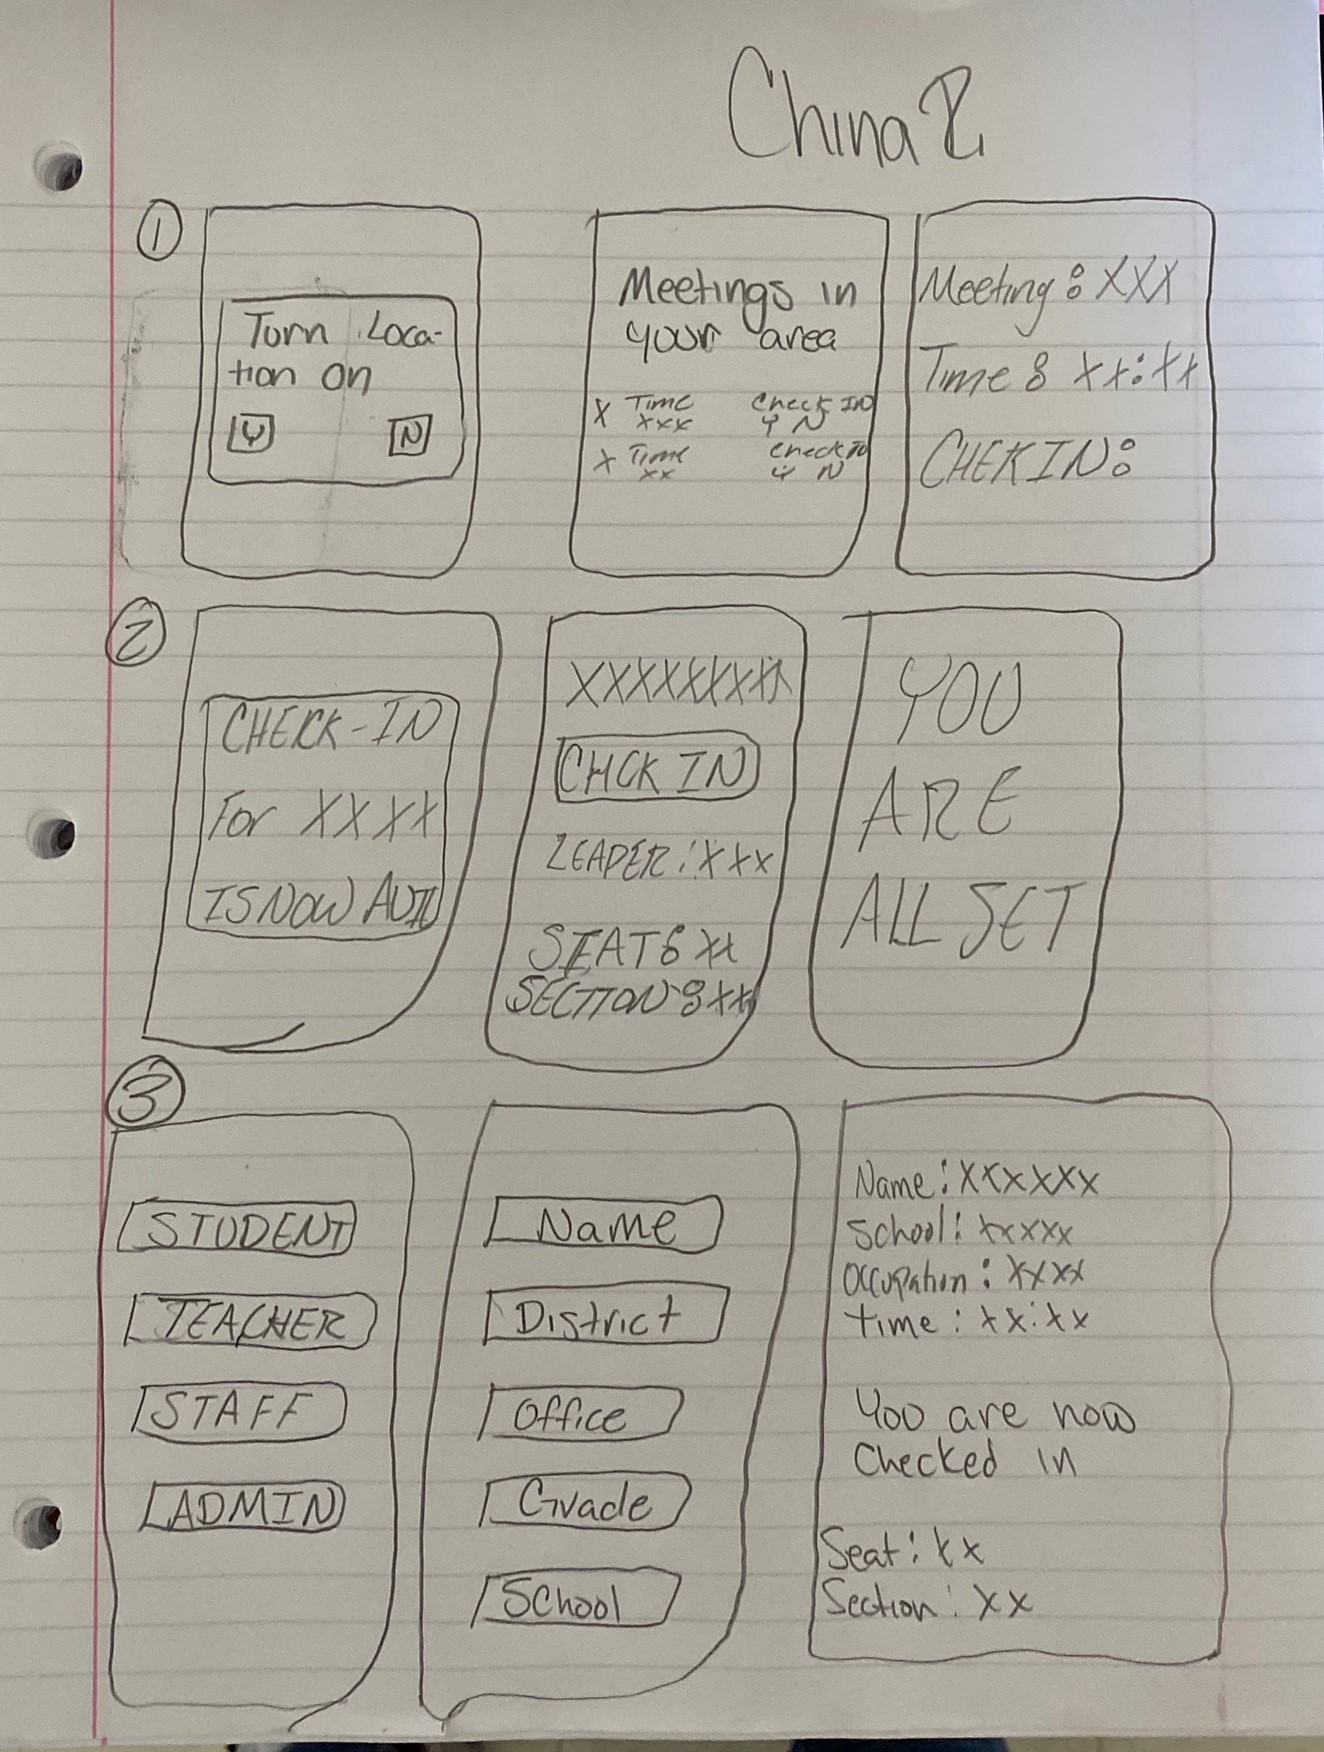 China R.
1
Turn Loca-
tion on
Y N
Meetings in
your area
X Time Check IN
xxx Y N
X Time Check IN
xx Y N
Meeting: XXX
Time: XX:XX
CHEKIN:
2
CHECK-IN
For XXXX
IS NOW AVIL
XXXXXXXXX
CHCK IN
LEADER: XXX
SEAT: XX
SECTION: XX
YOU
ARE
ALL SET
3
STUDENT
TEACHER
STAFF
ADMIN
Name
District
Office
Grade
School
Name: XXXXXX
School: XXXXX
Occupation: XXXX
Time: XX:XX
You are now
Checked in
Seat: XX
Section: XX